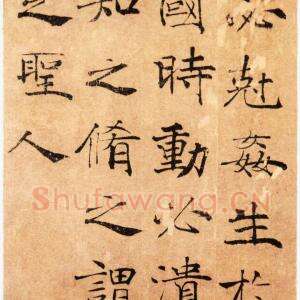 必尅姦生於
國時動必潰
知之脩之謂
之聖人
Shufawang.CN